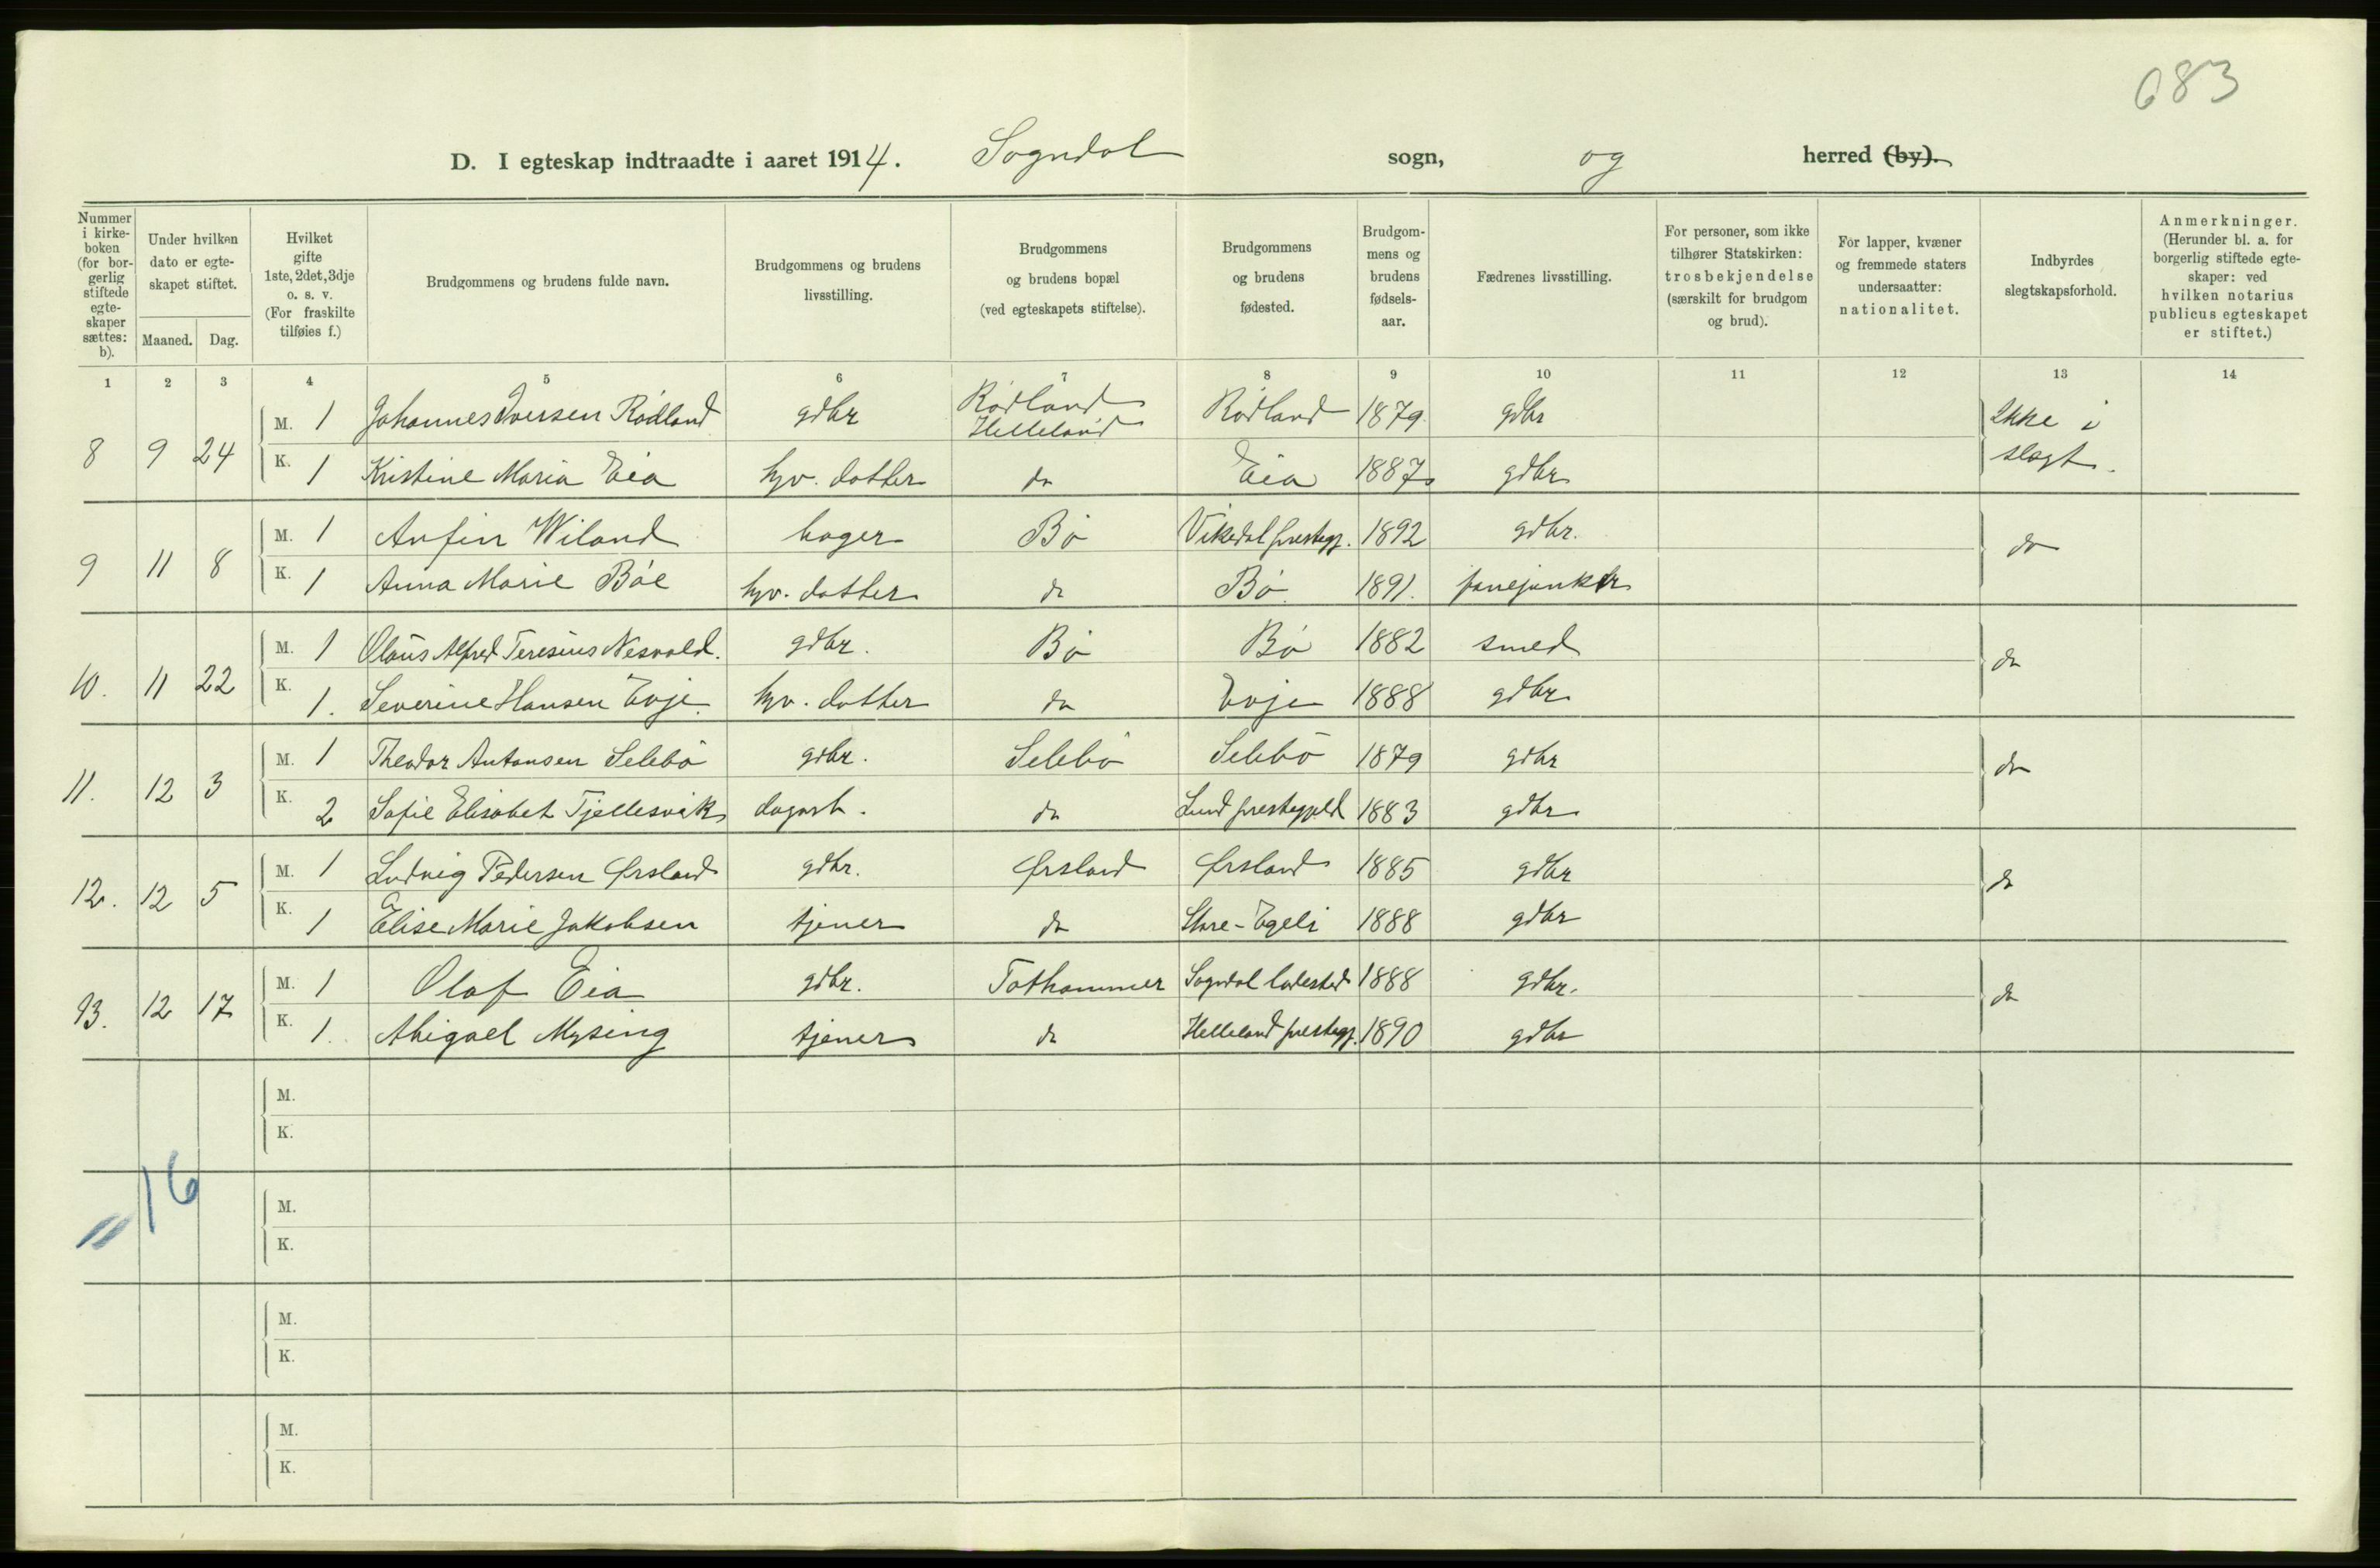 683
D. I egteskap indtraadte i aaret 1914. Sogndal sogn, og herred (by).
Nummer i kirke-boken (for bor-gerlig stiftede egte-skaper sættes: b).
Under hvilken dato er egte-skapet stiftet.
Maaned. Dag.
Hvilket gifte 1ste, 2det, 3dje o. s. v. (For fraskilte tilføies f.)
Brudgommens og brudens fulde navn.
Brudgommens og brudens livsstilling.
Brudgommens og brudens bopæl (ved egteskapets stiftelse).
Brudgommens og brudens fødested.
Brudgom-mens og brudens fødsels-aar.
Fædrenes livsstilling.
For personer, som ikke tilhører Statskirken: trosbekjendelse (særskilt for brudgom og brud).
For lapper, kvæner og fremmede staters undersaatter: nationalitet.
Indbyrdes slegtskapsforhold.
Anmerkninger. (Herunder bl. a. for borgerlig stiftede egte-skaper: ved hvilken notarius publicus egteskapet er stiftet.)
1 2 3 4 5 6 7 8 9 10 11 12 13 14
8 9 24 M. 1 Johannes Iversen Rødland gdbr Rødland Helleland Rødland 1879 gdbr Ikke i slegt.
K. 1 Kristine Maria Eia hjv. datter do Eia 1887 gdbr
9 11 8 M. 1 Anfin Wiland bager Bø Vikedal prestegj. 1892 gdbr. do
K. 1 Anna Marie Bøe hjv. datter do Bø 1891. fanejunker
10. 11 22 M. 1 Olaus Alfred Teresius Nesvold. gdbr. Bø Bø 1882 smed do
K. 1. Severine Hansen Evje. hjv. datter do Evje 1888 gdbr
11. 12 3 M. 1 Theodor Antonsen Selebø gdbr. Selebø Selebø 1879 gdbr do
K. 2 Sofie Elisabet Tjellesvik dagarb. do Lund prestegjeld 1883 gdbr
12. 12 5 M. 1 Ludvig Pedersen Ørsland gdbr. Ørsland Ørsland 1885 gdbr do
K. 1 Elise Marie Jakobsen tjener do Store-Egeli 1888 gdbr
13. 12 17 M. 1 Olaf Eia gdbr. Tothammer Sogndal ladested 1888 gdbr. do
K. 1. Abigael Mysing tjener do Helleland prestegj. 1890 gdbr
M.
K.
16
M.
K.
M.
K.
M.
K.